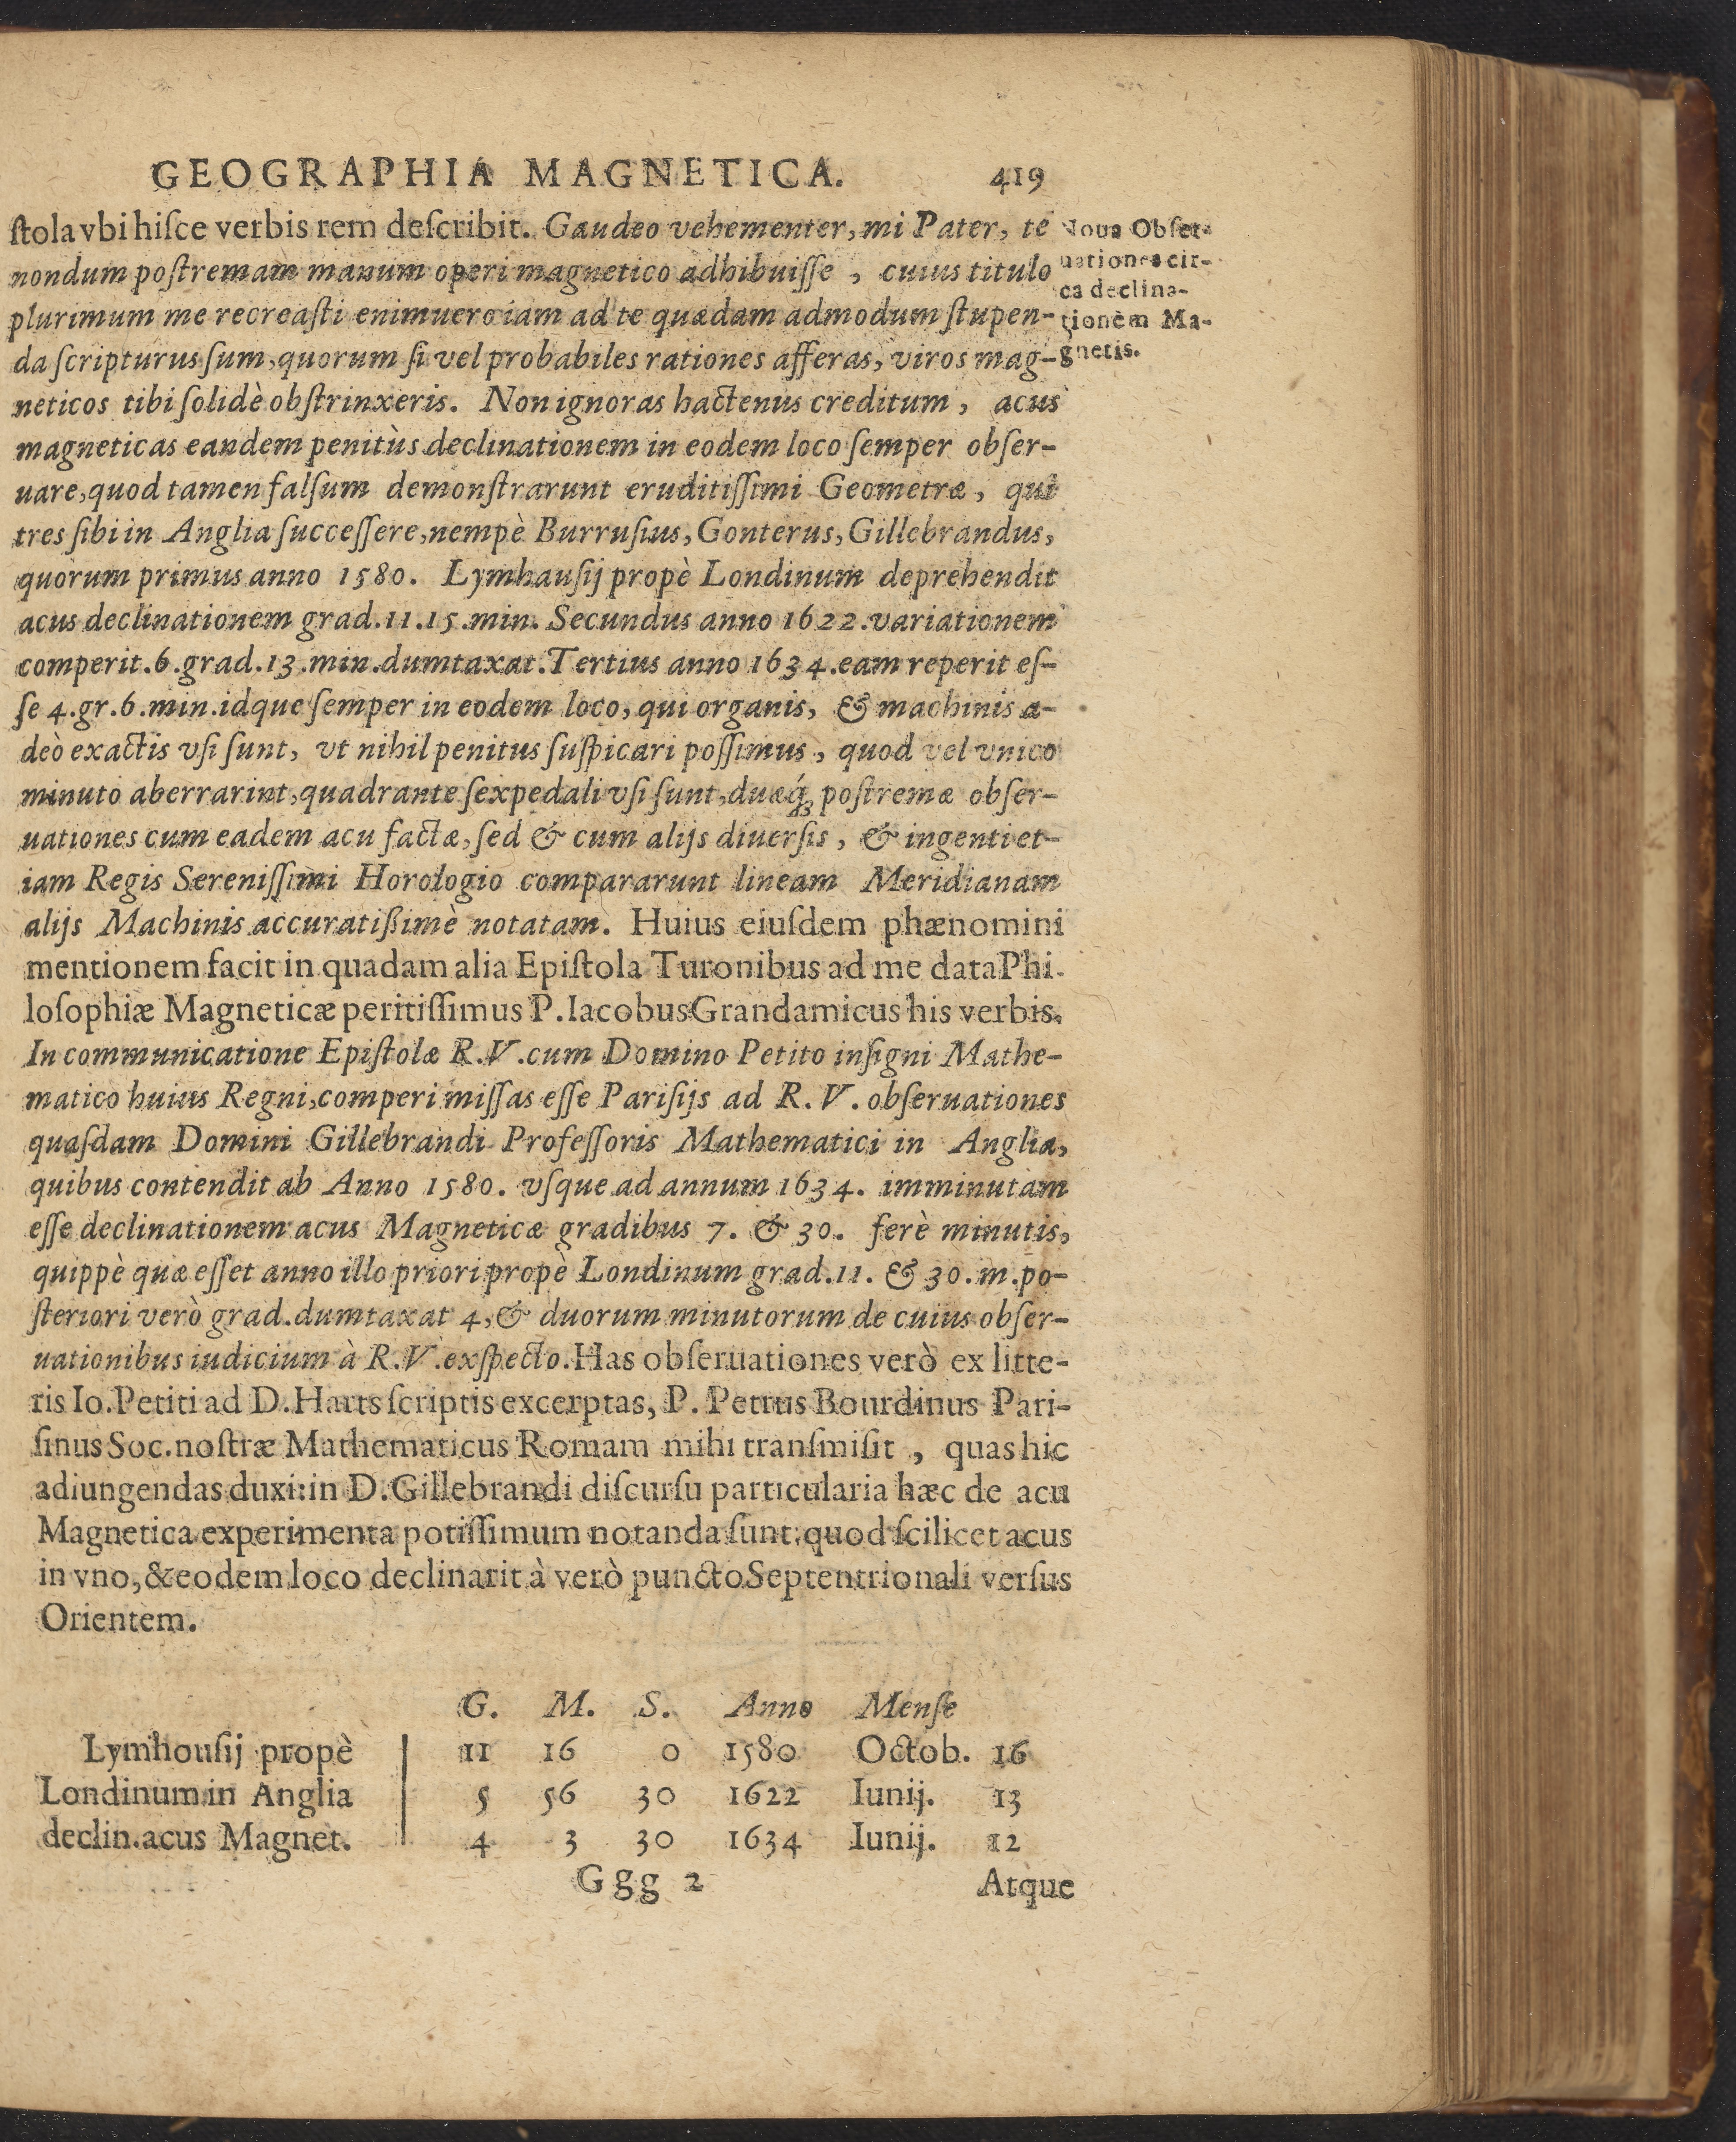 GEOGRAPHIA MAGNETICA. 419
ſtola vbi hiſce verbis rem deſcribit. Gaudeo vehementer, mi Pater, te
nondum poſtremam manum operi magnetico adhibuiſſe, cuius titulo
plurimum me recreaſti enimuero iam ad te quædam admodum ſtupen-
da ſcripturus ſum, quorum ſi vel probabiles rationes afferas, viros mag-
neticos tibi ſolidè obſtrinxeris. Non ignoras hactenus creditum, acus
magneticas eandem penitùs declinationem in eodem loco ſemper obſer-
uare, quod tamen falſum demonſtrarunt eruditiſſimi Geometræ, qui
tres ſibi in Anglia ſucceſſere, nempè Burruſius, Gonterus, Gillebrandus,
quorum primus anno 1580. Lymhauſij propè Londinum deprehendit
acus declinationem grad. 11. 15. min. Secundus anno 1622. variationem
comperit. 6. grad. 13. min. dumtaxat. Tertius anno 1634. eam reperit eſ-
ſe 4. gr. 6. min. idque ſemper in eodem loco, qui organis, & machinis a-
deò exactis vſi ſunt, vt nihil penitus ſuſpicari poſſimus, quod vel vnico
minuto aberrarint, quadrante ſexpedali vſi ſunt, duæq́; poſtremæ obſer-
uationes cum eadem acu factæ, ſed & cum alijs diuerſis, & ingenti et-
iam Regis Sereniſſimi Horologio compararunt lineam Meridianam
alijs Machinis accuratißimè notatam. Huius eiuſdem phænomini
mentionem facit in quadam alia Epiſtola Turonibus ad me data Phi-
loſophiæ Magneticæ peritiſſimus P. Iacobus Grandamicus his verbis.
In communicatione Epiſtolæ R. V. cum Domino Petito inſigni Mathe-
matico huius Regni, comperi miſſas eſſe Pariſijs ad R. V. obſeruationes
quaſdam Domini Gillebrandi Profeſſoris Mathematici in Anglia,
quibus contendit ab Anno 1580. vſque ad annum 1634. imminutam
eſſe declinationem acus Magneticæ gradibus 7. & 30. ferè minutis,
quippè quæ eſſet anno illo priori propè Londinum grad. 11. & 30. m. po-
ſteriori verò grad. dumtaxat 4, & duorum minutorum de cuius obſer-
uationibus iudicium à R. V. exſpecto. Has obſeruationes verò ex litte-
ris Io. Petiti ad D. Harts ſcriptis excerptas, P. Petrus Bourdinus Pari-
ſinus Soc. noſtræ Mathematicus Romam mihi tranſmiſit, quas hic
adiungendas duxi: in D. Gillebrandi diſcurſu particularia hæc de acu
Magnetica experimenta potiſſimum notanda ſunt; quod ſcilicet acus
in vno, & eodem loco declinarit à verò puncto Septentrionali verſus
Orientem.
Noua Obſer-
uationes cir-
ca declina-
tionèm Ma-
gnetis.
G. M. S. Anno Menſe
Lymhouſij propè 11 16 0 1580 Octob. 16
Londinum in Anglia 5 56 30 1622 Iunij. 13
declin. acus Magnet. 4 3 30 1634 Iunij. 12
Ggg 2 Atque